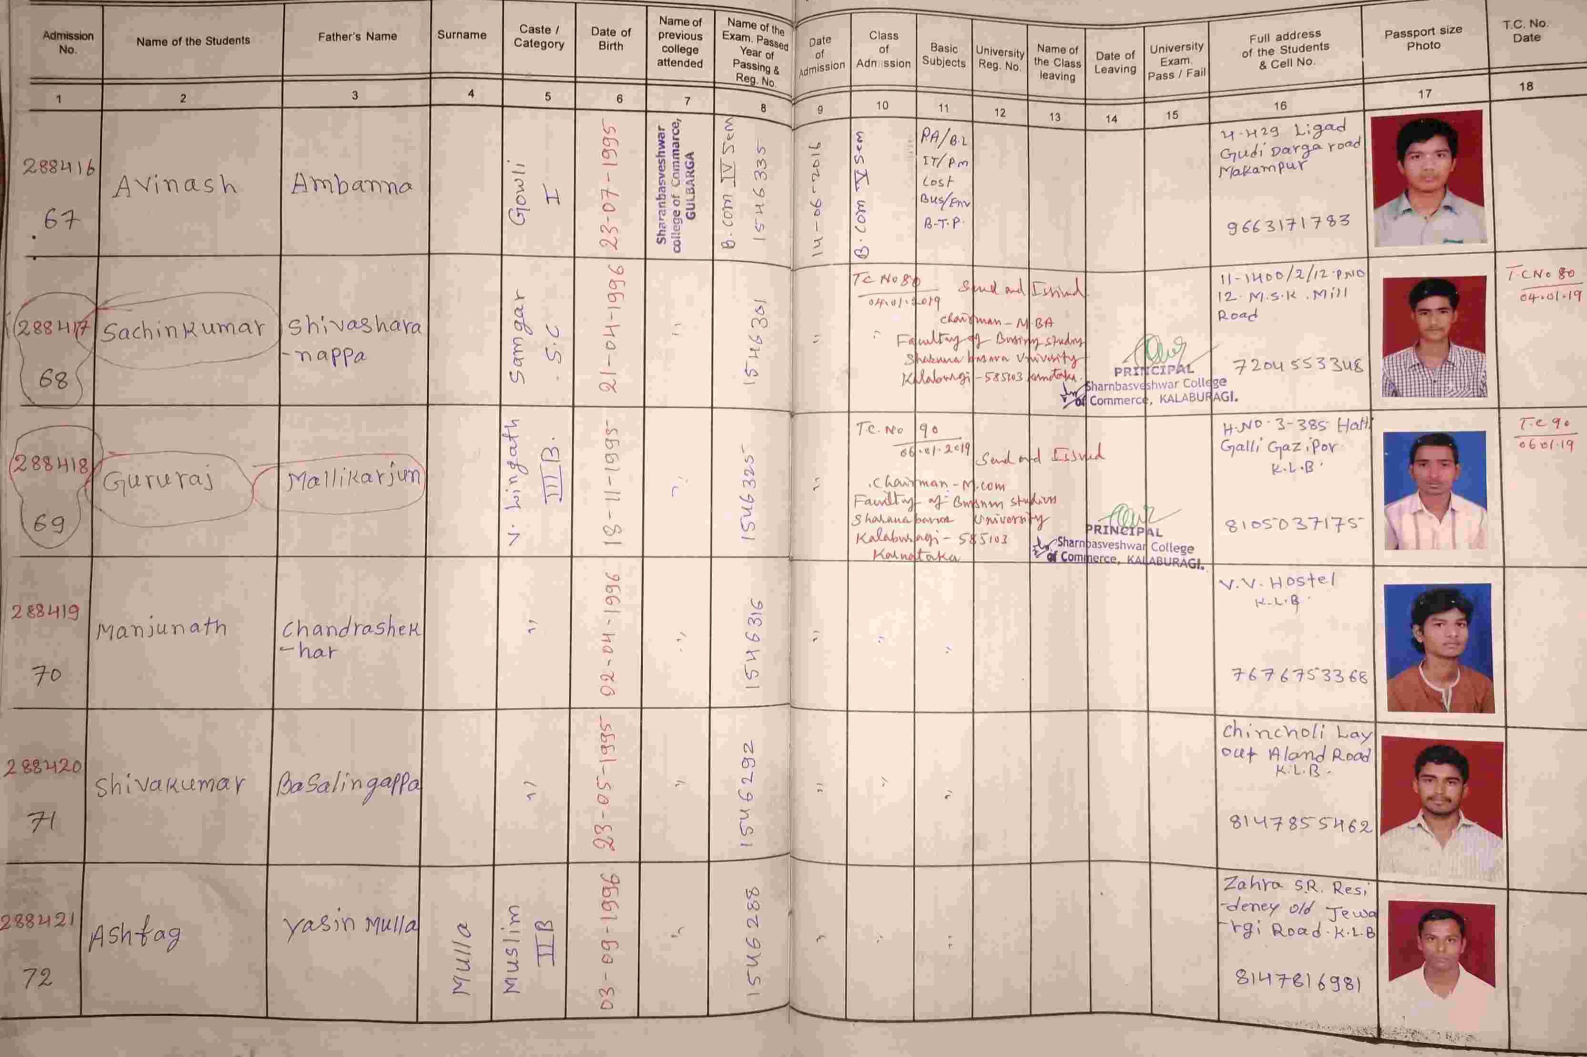 Admission No.
Name of the Students
Father's Name
Surname
Caste / Category
Date of Birth
Name of previous college attended
Name of the Exam. Passed Year of Passing & Reg. No.
Date of Admission
Class of Admission
Basic Subjects
University Reg. No.
Name of the Class leaving
Date of Leaving
University Exam. Pass / Fail
Full address of the Students & Cell No.
Passport size Photo
T.C. No. Date
1 2 3 4 5 6 7 8 9 10 11 12 13 14 15 16 17 18
288416
67
Avinash
Ambanna
Gowli
I
23-07-1995
Sharanbasveshwar
college of Commarce,
GULBARGA
B.com IV Sem
1546335
14-06-2016
B.com V Sem
PA/B.L
IT/Pm
Cost
Bus/Env
B.T.P.
4-429 Ligad
Gudi Darga road
Makampur
9663171783
288417
68
Sachinkumar
Shivashara
-nappa
Samgar
S.C
21-04-1996
"
1546301
"
"
TC No 80
04.01.2019
Send and Issued
Chairman - MBA
Faculting of Bussiny studny
Sharana basava Univirsity
Kalaburgi - 585103 Karntaka.
PRINCIPAL
Sharnbasveshwar College
of Commerce, KALABURAGI.
11-1400/2/12. PNO
12. M.S.K. Mill
Road
7204553348
T.C No 80
04.01.19
288418
69
Gururaj
Mallikarjun
V. Lingath
III B.
18-11-1995
"
1546325
"
T.C. No 90
06.01.2019
Send and Issued
Chairman - M.com
Faculty of Bussnm studies
Sharana basava University
Kalaburagi - 585103
Karnataka
PRINCIPAL
Sharnbasveshwar College
of Commerce, KALABURAGI.
H.NO. 3-385 Hatt
Galli Gazipor
K.L.B.
8105037175
T.C 90
06.01.19
288419
70
Manjunath
Chandrashek
-har
"
02-04-1996
"
1546316
"
"
"
V.V. Hostel
K.L.B.
7676753368
288420
71
Shivakumar
Basalingappa
"
23-05-1995
"
1546292
"
"
"
Chincholi Lay
out Aland Road
K.L.B.
8147855462
288421
72
Ashfag
Yasin Mulla
Mulla
Muslim
II B
03-09-1996
"
1546288
"
"
"
Zahra S.R. Resi
-deney old Jewa
-rgi Road. K.L.B
8147816981